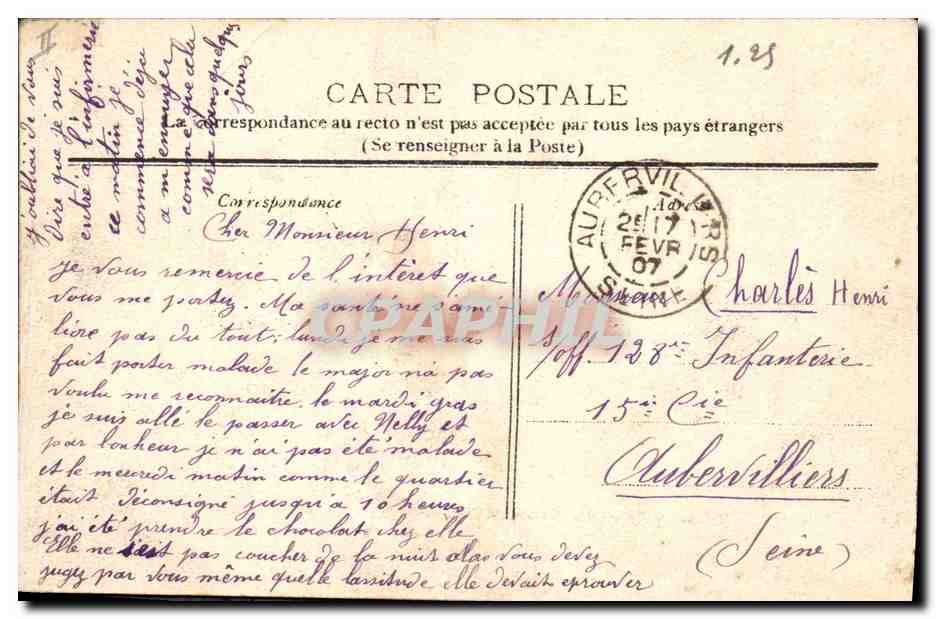 II
1.25
CARTE POSTALE
La correspondance au recto n'est pas acceptée par tous les pays étrangers
(Se renseigner à la Poste)
Correspondance
Adresse
AUBERVILLIERS
25 17
FEVR
07
SEINE
CPAPHIL
Cher Monsieur Henri
Je vous remercie de l'intèret que
vous me portez. Ma santé ne s'amé
liore pas du tout; lundi je me suis
fait porter malade le major n'a pas
voulu me reconnaitre. le mardi gras
je suis allé le passer avec Nelly et
par bonheur je n'ai pas été malade
et le mercredi matin comme le quartier
était déconsigné jusqu'à 10 heures
j'ai été prendre le chocolat chez elle
Elle ne s'est pas coucher de la nuit alas vous devez
jugez par vous même quelle lassitude elle devait eprouver
J'oubliai de vous
dire que je suis
entré a l'infirmerie
ce matin je
commence déjà
a m'ennuyer
comme que cela
sera dans quelques
jours
Monsieur Charlès Henri
s/off. 128è Infanterie
15è Cie
Aubervilliers
(Seine)